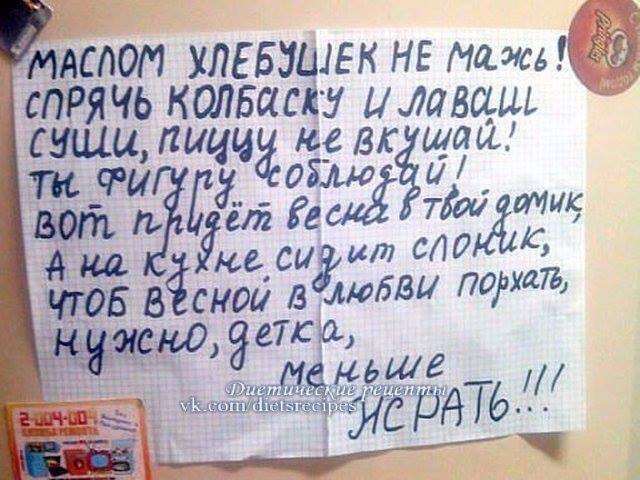 МАСЛОМ ХЛЕБУШЕК НЕ мажь!
СПРЯЧЬ КОЛБАСКУ И ЛАВАШ
СУШИ, ПИЦЦУ НЕ ВКУШАЙ!
ТЫ ФИГУРУ СОБЛЮДАЙ!
ВОТ ПРИДЁТ ВЕСНА В ТВОЙ ДОМИК,
А НА КУХНЕ СИДИТ СЛОНИК,
ЧТОБ ВЕСНОЙ В ЛЮБВИ ПОРХАТЬ,
НУЖНО, ДЕТКА,
МЕНЬШЕ
ЖРАТЬ!!!
Диетические рецепты
vk.com/dietsrecipes
2-004-004